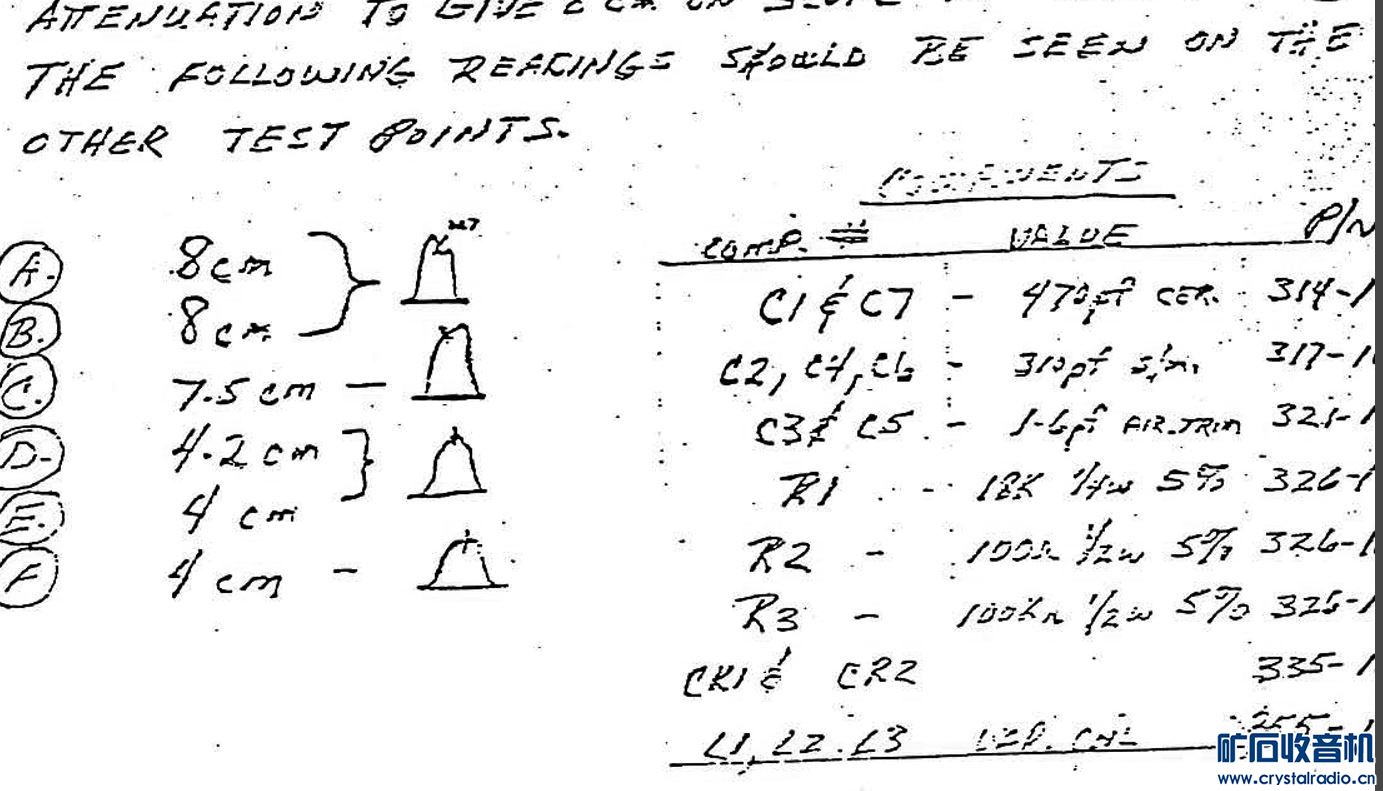 ATTENUATION TO GIVE ON
THE FOLLOWING READINGS SHOULD BE SEEN ON THE
OTHER TEST POINTS.
COMPONENTS
COMP. # VALUE P/N
A. 8cm
B. 8cm
C. 7.5 cm —
D. 4.2 cm
E. 4 cm
F 4 cm —
C1 & C7 — 470pf CER. 314-1
C2, C4, C6 - 310pf S/M. 317-1
C3 & C5 - 1-6pf AIR.TRIM
R1 - 18K 1/4w 5% 326-1
R2 - 100Ω 1/2w 5% 326-1
R3 - 100KΩ 1/2w 5% 326-1
CR1 & CR2 335-1
L1, L2. L3 255-1
矿石收音机
www.crystalradio.cn